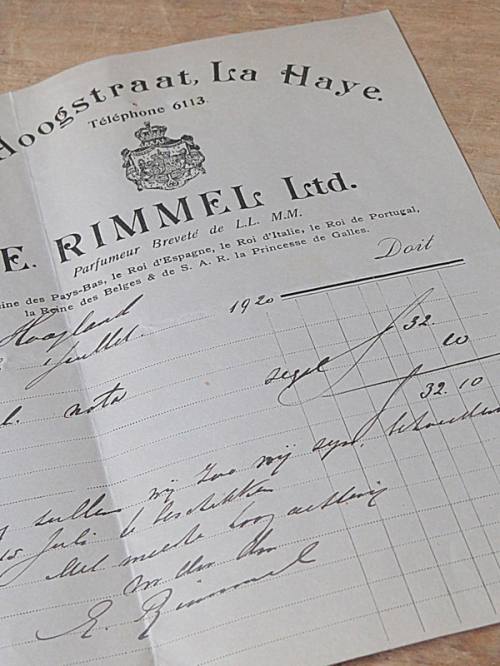 Hoogstraat, La Haye.
Téléphone 6113.
E. RIMMEL Ltd.
Parfumeur Breveté de L.L. M.M.
eine des Pays-Bas, le Roi d'Espagne, le Roi d'Italie, le Roi de Portugal,
la Reine des Belges & de S. A. R. la Princesse de Galles.
Doit
Hoogland
Juillet. 1920
nota segel f 32.
10
f 32.10
zullen wij zoo vrij zijn
Juli te beschikken
Met meeste hoogachting
E. Rimmel